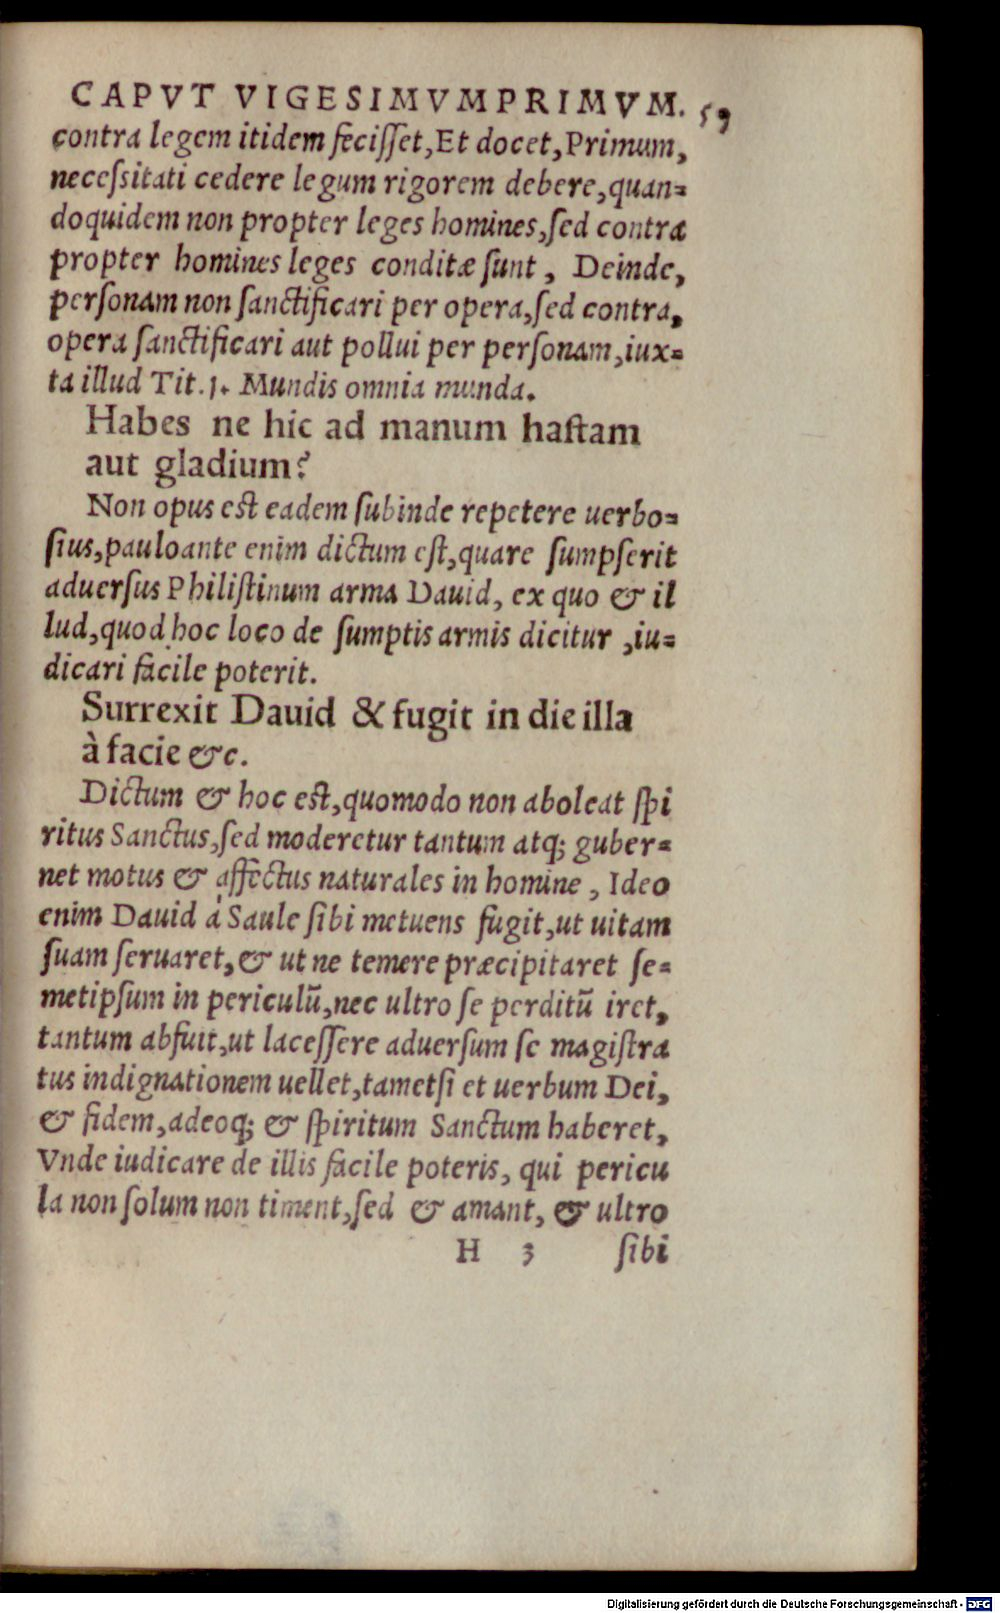 CAPVT VIGESIMVMPRIMVM. 59
contra legem itidem fecisset, Et docet, Primum,
necessitati cedere legum rigorem debere, quan=
doquidem non propter leges homines, sed contra
propter homines leges conditæ sunt, Deinde,
personam non sanctificari per opera, sed contra,
opera sanctificari aut pollui per personam, iux=
ta illud Tit. 1. Mundis omnia munda.
Habes ne hic ad manum hastam
aut gladium?
Non opus est eadem subinde repetere uerbo=
sius, pauloante enim dictum est, quare sumpserit
aduersus Philistinum arma Dauid, ex quo & il
lud, quod hoc loco de sumptis armis dicitur, iu=
dicari facile poterit.
Surrexit Dauid & fugit in die illa
à facie &c.
Dictum & hoc est, quomodo non aboleat spi
ritus Sanctus, sed moderetur tantum atq; guber=
net motus & affectus naturales in homine, Ideo
enim Dauid à Saule sibi metuens fugit, ut uitam
suam seruaret, & ut ne temere præcipitaret se=
metipsum in periculũ, nec ultro se perditũ iret,
tantum abfuit, ut lacessere aduersum se magistra
tus indignationem uellet, tametsi et uerbum Dei,
& fidem, adeoq; & spiritum Sanctum haberet,
Vnde iudicare de illis facile poteris, qui pericu
la non solum non timent, sed & amant, & ultro
H 3 sibi
Digitalisierung gefördert durch die Deutsche Forschungsgemeinschaft - DFG